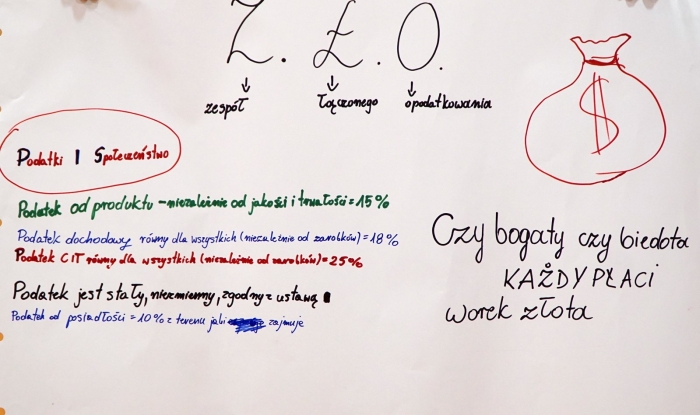 Z. Ł. O.
zespół łączonego opodatkowania
Podatki I Społeczeństwo
Podatek od produktu - niezależnie od jakości i trwałości = 15%
Podatek dochodowy równy dla wszystkich (niezależnie od zarobków) = 18%
Podatek CIT równy dla wszystkich (niezależnie od zarobków) = 25%
Podatek jest stały, niezmienny, zgodny z ustawą
Podatek od posiadłości = 10% z terenu jaki zajmuje
$
Czy bogaty czy biedota
KAŻDY PŁACI
worek złota